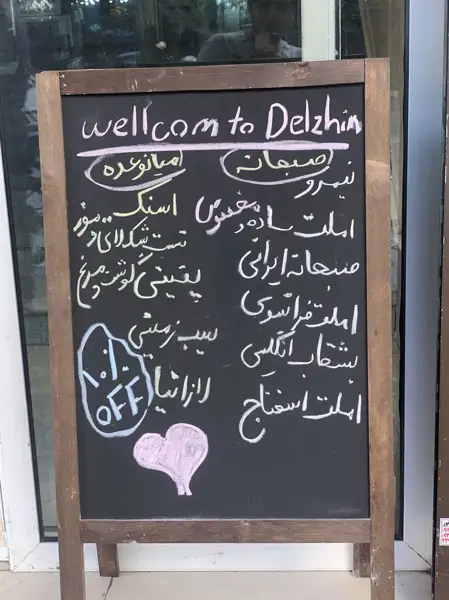 wellcom to Delzhin
صبحانه
نیمرو
املت ساده و مخصوص
صبحانه ایرانی
املت فرانسوی
بشقاب انگلیسی
املت اسفناج
میانوعده
اسنک
تست شکلاتی و موز
یتیمچی گوشت و مرغ
سیب زمینی
لازانیا
۱۰٪
OFF